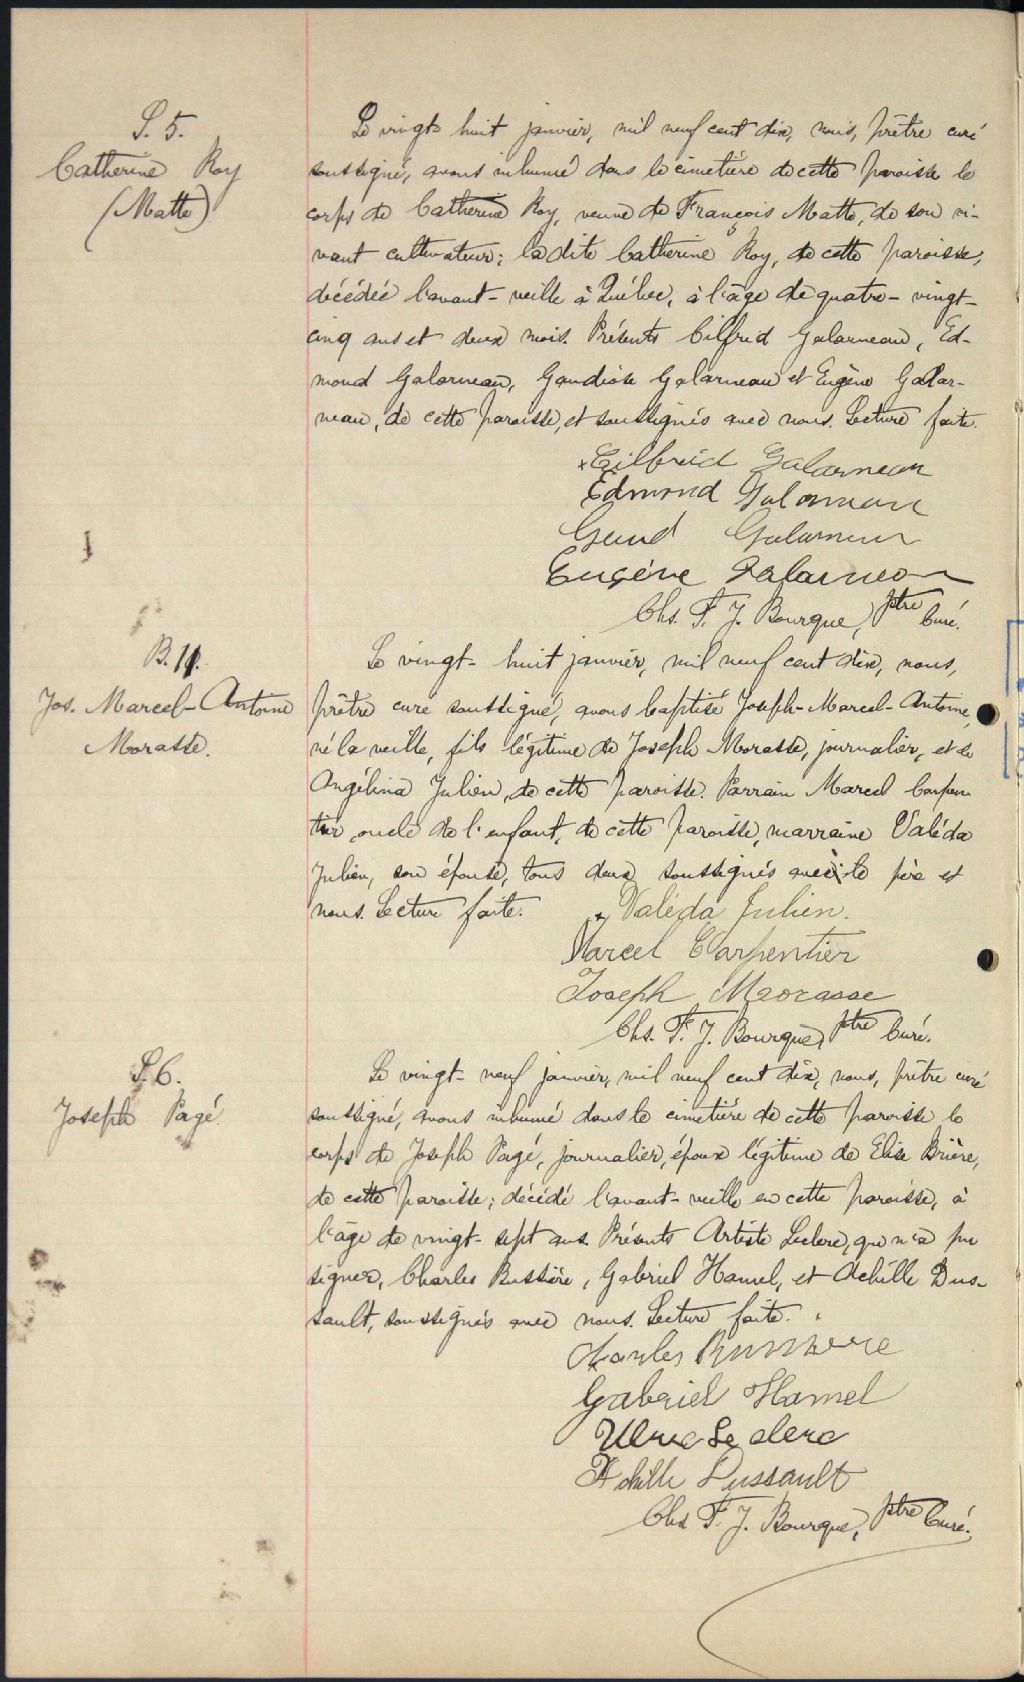 S. 5.
Catherine Roy
(Matte)
Le vingt-huit janvier, mil neuf cent dix, nous, prêtre curé
soussigné, avons inhumé dans le cimetière de cette paroisse le
corps de Catherine Roy, veuve de François Matte, de son vi-
vant cultivateur; la dite Catherine Roy, de cette paroisse,
décédée l'avant-veille à Québec, à l'âge de quatre-vingt-
cinq ans et deux mois. Présents Cilfrid Galarneau, Ed-
mond Galarneau, Gaudiose Galarneau et Eugène Galar-
neau, de cette paroisse, et soussignés avec nous. Lecture faite.
Cilfrid Galarneau
Edmond Galarneau
Gaud Galarneau
Eugéne Galarneau
Chs. F. J. Bourque, Ptre Curé.
B. 11.
Jos. Marcel-Antoine
Morasse.
Le vingt-huit janvier, mil neuf cent dix, nous,
prêtre curé soussigné, avons baptisé Joseph-Marcel-Antoine,
né la veille, fils légitime de Joseph Morasse, journalier, et de
Angélina Julien, de cette paroisse. Parrain Marcel Carpen
tier, oncle de l'enfant, de cette paroisse, marraine Valéda
Julien, son épouse, tous deux soussignés avec le père et
nous. Lecture faite.
Valéda Julien.
Marcel Carpentier
Joseph Morasse
Chs. F. J. Bourque, Ptre Curé.
S. 6.
Joseph Pagé.
Le vingt-neuf janvier, mil neuf cent dix, nous, prêtre curé
soussigné, avons inhumé dans le cimetière de cette paroisse le
corps de Joseph Pagé, journalier, époux légitime de Elise Brière,
de cette paroisse; décédé l'avant-veille en cette paroisse, à
l'âge de vingt-sept ans. Présents Artiste Leclerc, qui n'a pu
signer, Charles Bussière, Gabriel Hamel, et Achille Dus-
sault, soussignés avec nous. Lecture faite.
Charles Bussiere
Gabriel Hamel
Ulric Leclerc
Achille Dussault
Chs F. J. Bourque, Ptre Curé.